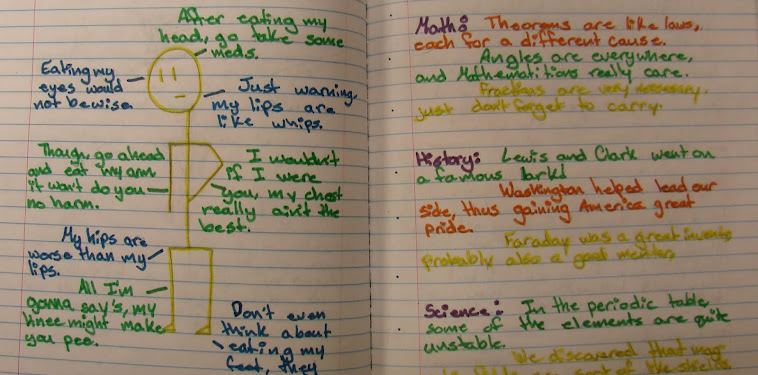 After eating my
head, go take some
meds.
Eating my
eyes would
not be wise.
Just warning,
my lips are
like whips.
Though, go ahead
and eat my arm
it won't do you
no harm.
I wouldn't
if I were
you, my chest
really ain't the
best.
My hips are
worse than my
lips.
All I'm
gonna say's, my
knee might make
you pee.
Don't even
think about
eating my
feet, they
Math: Theorems are like laws,
each for a different cause.
Angles are everywhere,
and Mathematitions really care.
Fractions are very necessary,
just don't forget to carry.
History: Lewis and Clark went on
a famous lark!
Washington helped lead our
side, thus gaining America great
pride.
Faraday was a great
probably also a good
Science: In the periodic table
some of the elements are quite
unstable.
We discovered that
sort of the shields.